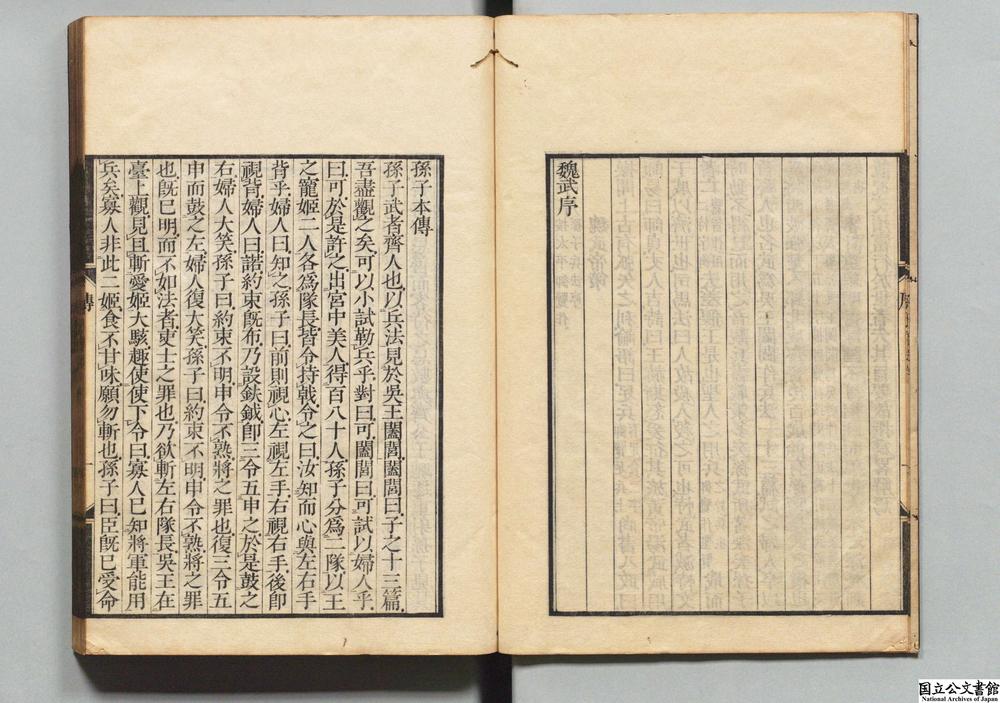 魏武序
序
孫子本傳
孫子武者齊人也以兵法見於吳王闔閭闔閭曰子之十三篇
吾盡觀之矣可以小試勒兵乎對曰可闔閭曰可試以婦人乎
曰可於是許之出宮中美人得百八十人孫子分爲二隊以王
之寵姬二人各爲隊長皆令持戟令之曰汝知而心與左右手
背乎婦人曰知之孫子曰前則視心左視左手右視右手後即
視背婦人曰諾約束既布乃設鈇鉞即三令五申之於是鼓之
右婦人大笑孫子曰約束不明申令不熟將之罪也復三令五
申而鼓之左婦人復大笑孫子曰約束不明申令不熟將之罪
也既已明而不如法者吏士之罪也乃欲斬左右隊長吳王在
臺上觀見且斬愛姬大駭趣使使下令曰寡人已知將軍能用
兵矣寡人非此二姬食不甘味願勿斬也孫子曰臣既已受命
傳
国立公文書館
National Archives of Japan